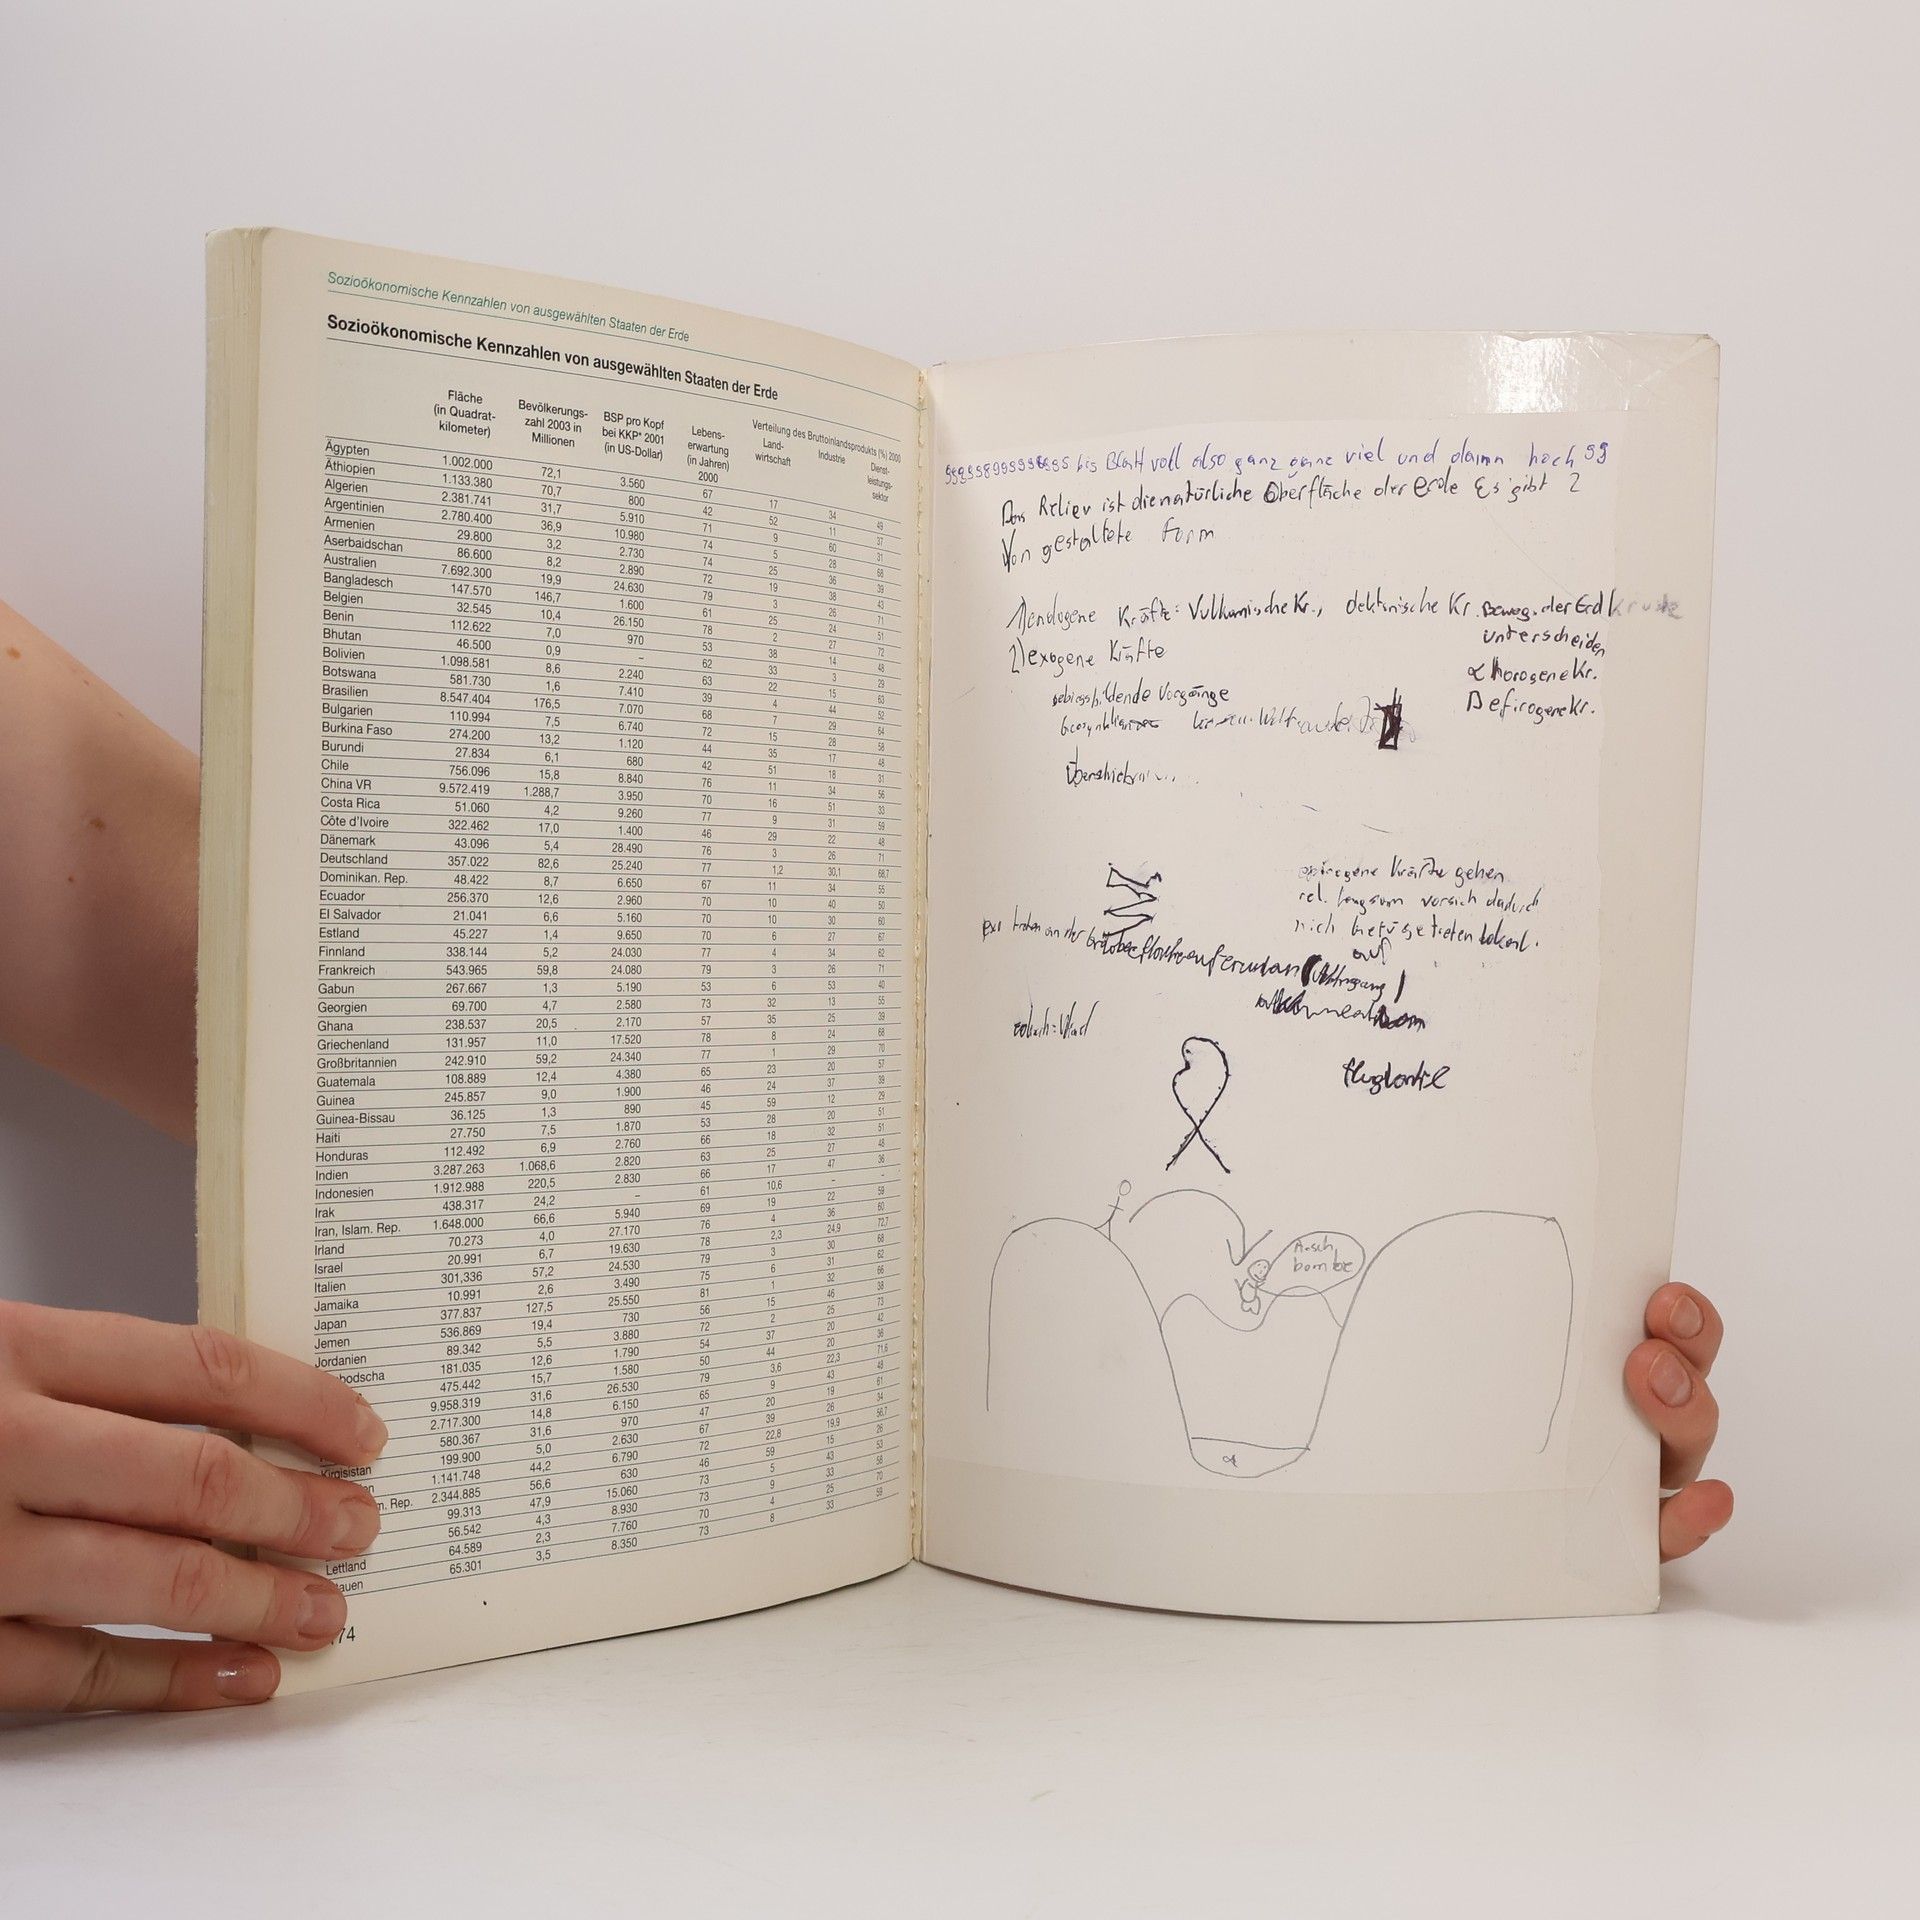 Sozioökonomische Kennzahlen von ausgewählten Staaten der Erde
Sozioökonomische Kennzahlen von ausgewählten Staaten der Erde
Fläche (in Quadrat-kilometer) Bevölkerungs-zahl 2003 in Millionen BSP pro Kopf bei KKP* 2001 (in US-Dollar) Lebens-erwartung (in Jahren) 2000 Verteilung des Bruttoinlandsprodukts (%) 2000
Land-wirtschaft Industrie Dienst-leistungs-sektor
Ägypten 1.002.000 72,1 3.560 67 17 34 49
Äthiopien 1.133.380 70,7 800 42 52 11 37
Algerien 2.381.741 31,7 5.910 71 9 60 31
Argentinien 2.780.400 36,9 10.980 74 5 28 68
Armenien 29.800 3,2 2.730 74 25 36 39
Aserbaidschan 86.600 8,2 2.890 72 19 38 43
Australien 7.692.300 19,9 24.630 79 3 26 71
Bangladesch 147.570 146,7 1.600 61 25 24 51
Belgien 32.545 10,4 26.150 78 2 27 72
Benin 112.622 7,0 970 53 38 14 48
Bhutan 46.500 0,9 – 62 33 3 29
Bolivien 1.098.581 8,6 2.240 63 22 15 63
Botswana 581.730 1,6 7.410 39 4 44 52
Brasilien 8.547.404 176,5 7.070 68 7 29 64
Bulgarien 110.994 7,5 6.740 72 15 28 58
Burkina Faso 274.200 13,2 1.120 44 35 17 48
Burundi 27.834 6,1 680 42 51 18 31
Chile 756.096 15,8 8.840 76 11 34 56
China VR 9.572.419 1.288,7 3.950 70 16 51 33
Costa Rica 51.060 4,2 9.260 77 9 31 59
Côte d'Ivoire 322.462 17,0 1.400 46 29 22 48
Dänemark 43.096 5,4 28.490 76 3 26 71
Deutschland 357.022 82,6 25.240 77 1,2 30,1 68,7
Dominikan. Rep. 48.422 8,7 6.650 67 11 34 55
Ecuador 256.370 12,6 2.960 70 10 40 50
El Salvador 21.041 6,6 5.160 70 10 30 60
Estland 45.227 1,4 9.650 70 6 27 67
Finnland 338.144 5,2 24.030 77 4 34 62
Frankreich 543.965 59,8 24.080 79 3 26 71
Gabun 267.667 1,3 5.190 53 6 53 40
Georgien 69.700 4,7 2.580 73 32 13 55
Ghana 238.537 20,5 2.170 57 35 25 39
Griechenland 131.957 11,0 17.520 78 8 24 68
Großbritannien 242.910 59,2 24.340 77 1 29 70
Guatemala 108.889 12,4 4.380 65 23 20 57
Guinea 245.857 9,0 1.900 46 24 37 39
Guinea-Bissau 36.125 1,3 890 45 59 12 29
Haiti 27.750 7,5 1.870 53 28 20 51
Honduras 112.492 6,9 2.760 66 18 32 51
Indien 3.287.263 1.068,6 2.820 63 25 27 48
Indonesien 1.912.988 220,5 2.830 66 17 47 36
Irak 438.317 24,2 – 61 10,6 – –
Iran, Islam. Rep. 1.648.000 66,6 5.940 69 19 22 59
Irland 70.273 4,0 27.170 76 4 36 60
Israel 20.991 6,7 19.630 78 2,3 24,9 72,7
Italien 301,336 57,2 24.530 79 3 30 68
Jamaika 10.991 2,6 3.490 75 6 31 62
Japan 377.837 127,5 25.550 81 1 32 66
Jemen 536.869 19,4 730 56 15 46 38
Jordanien 89.342 5,5 3.880 72 2 25 73
bodscha 181.035 12,6 1.790 54 37 20 42
475.442 15,7 1.580 50 44 20 36
9.958.319 31,6 26.530 79 3,6 22,3 71,6
2.717.300 14,8 6.150 65 9 43 48
580.367 31,6 970 47 20 19 61
Kirgisistan 199.900 5,0 2.630 67 39 26 34
en 1.141.748 44,2 6.790 72 22,8 19,9 56,7
m. Rep. 2.344.885 56,6 630 46 59 15 26
99.313 47,9 15.060 73 5 43 53
56.542 4,3 8.930 73 9 33 58
Lettland 64.589 2,3 7.760 70 4 25 70
tauen 65.301 3,5 8.350 73 8 33 59
74
bis Blatt voll also ganz ganz viel und dann hoch 99
Das Reliev ist die natürliche Oberfläche der Erde Es gibt 2
Von gestaltete Form
1) endogene Kräfte: Vulkanische Kr., dektonische Kr. Beweg. der Erdkruste
unterscheiden
2) exogene Kräfte
α horogene Kr.
gebirgsbildende Vorgänge
B efirogene Kr.
epirogene Kräfte gehen
rel. langsam vorsich dadurch
auf
A-sch
bombe
α